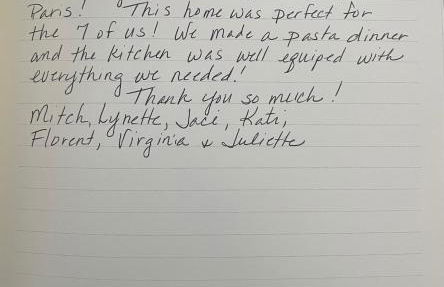 Paris! This home was perfect for
the 7 of us! We made a pasta dinner
and the kitchen was well equiped with
everything we needed!
Thank you so much!
Mitch, Lynette, Jaci, Kati,
Florent, Virginia & Juliette